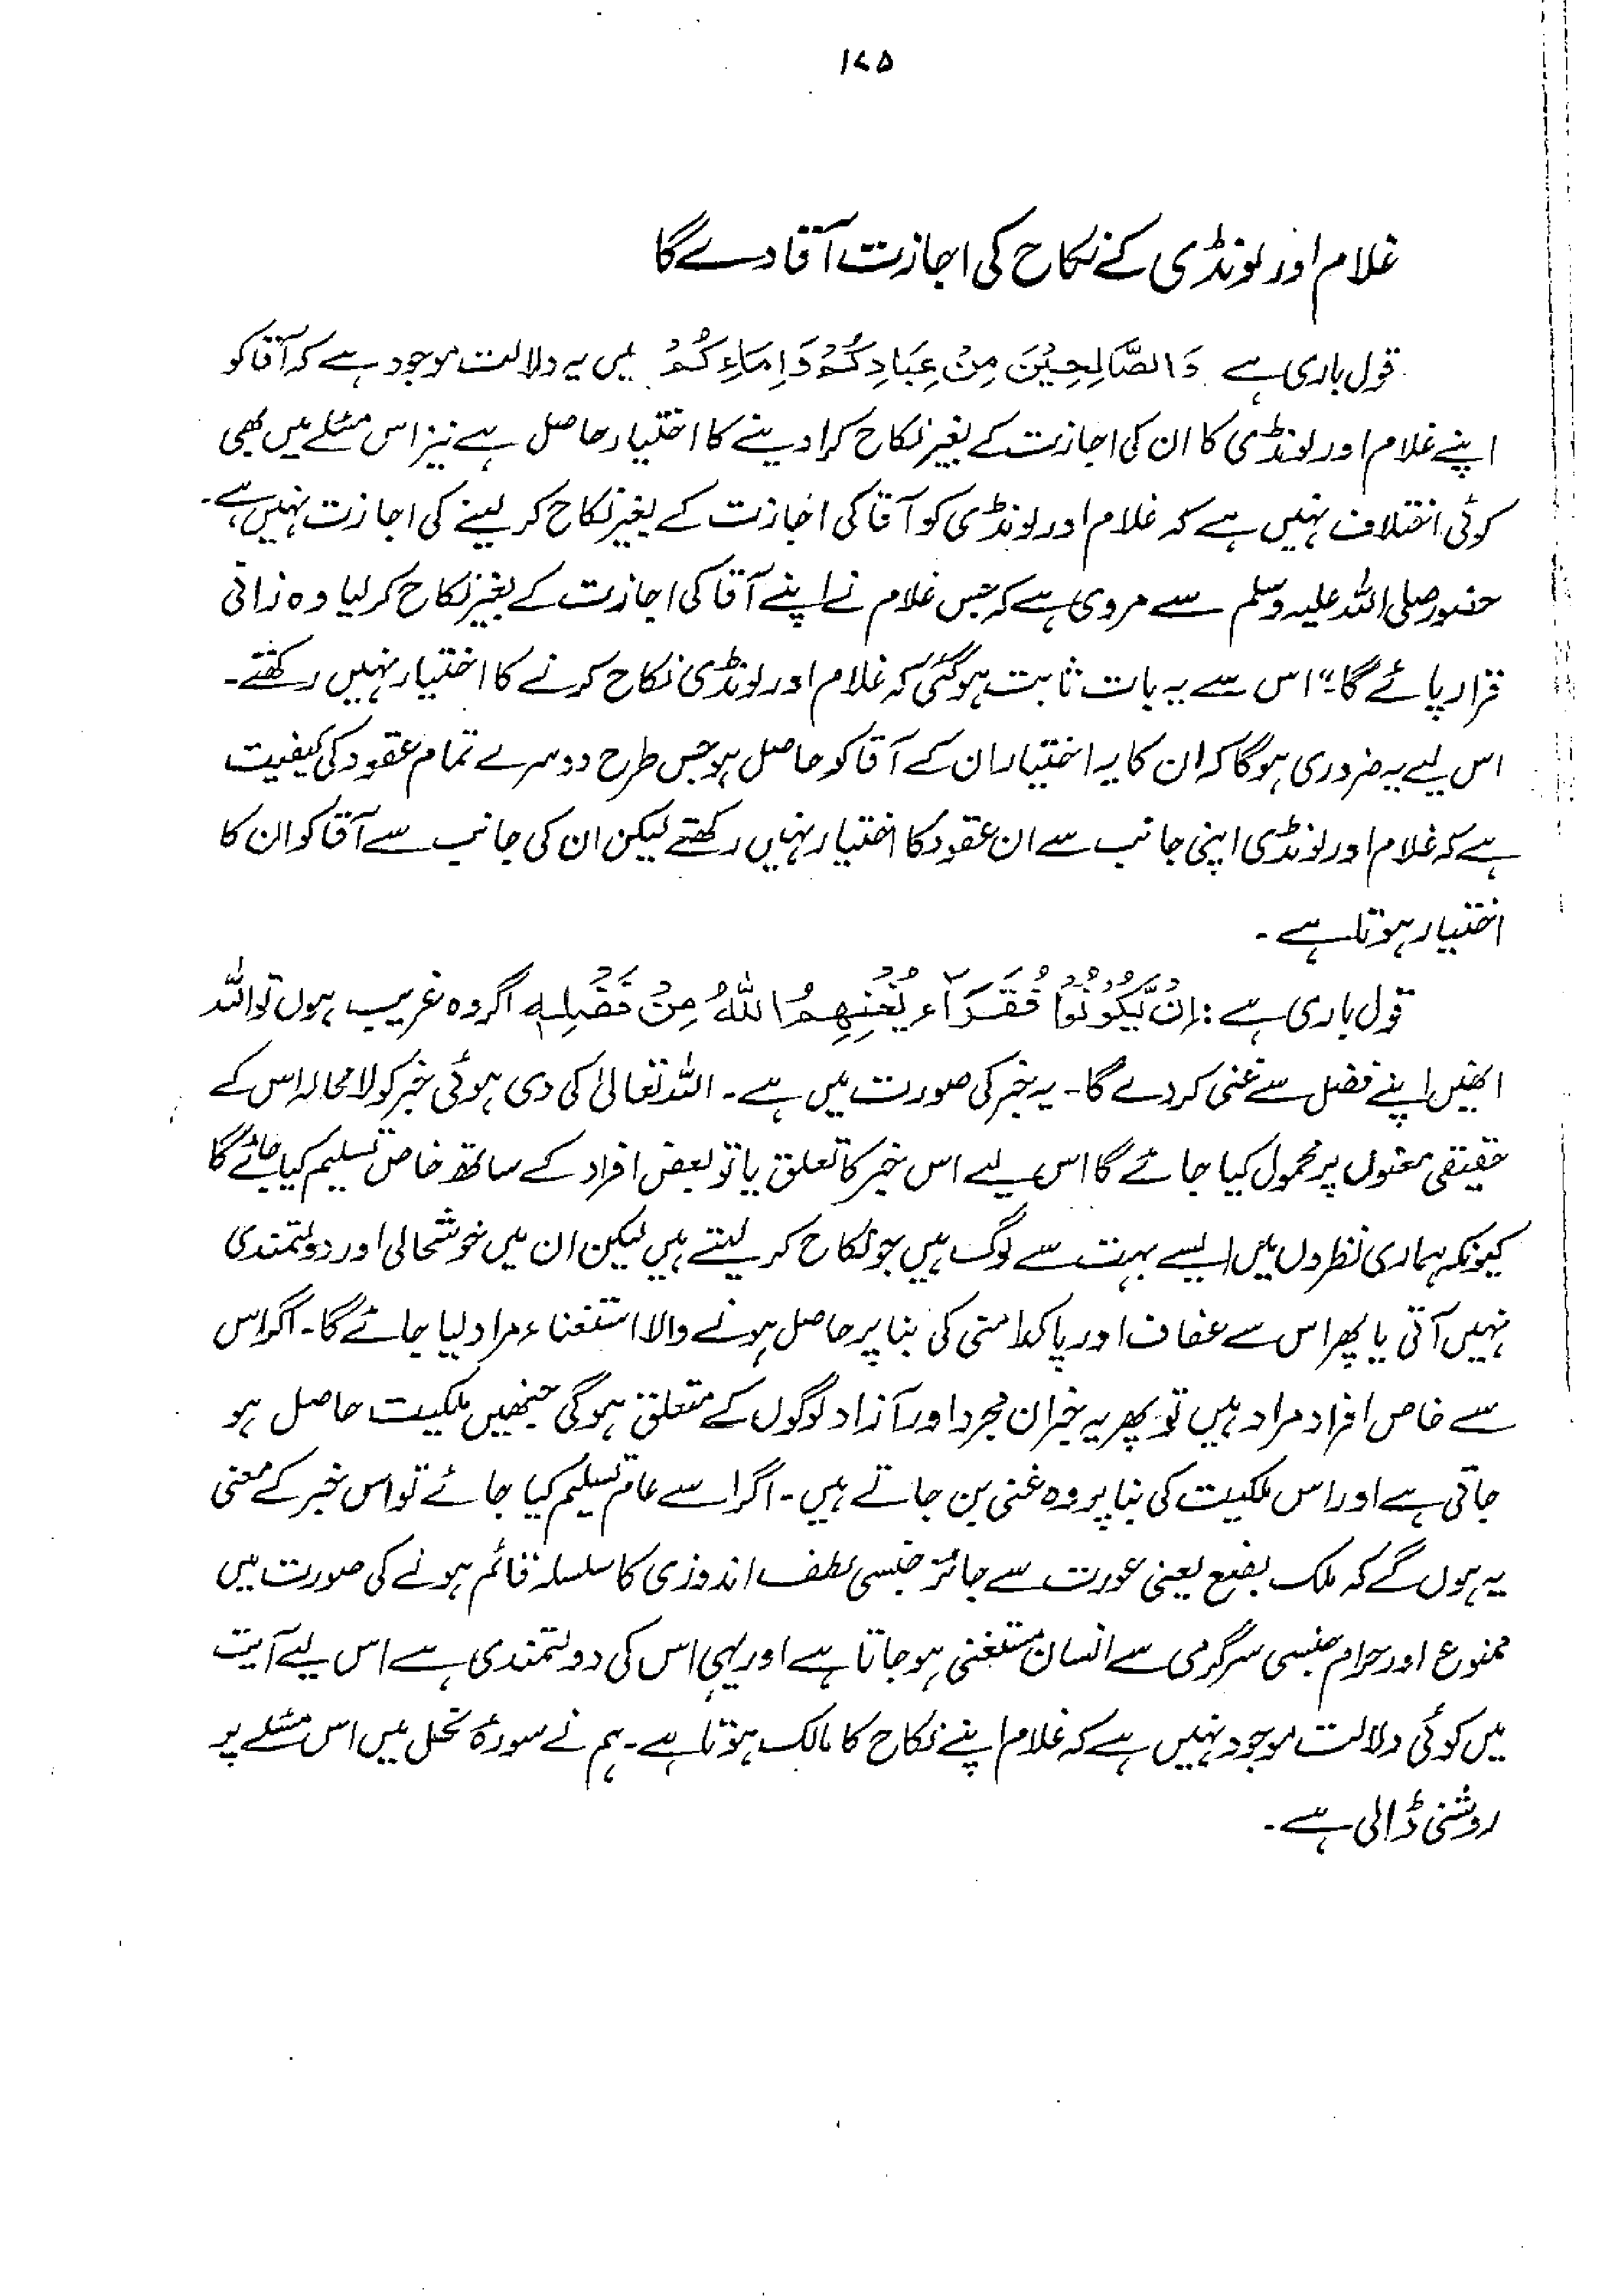 ۱۷۵
غلام اور لونڈی کے نکاح کی اجازت آقا دے گا
قول باری ہے وَالصَّالِحِيْنَ مِنْ عِبَادِكُمْ وَاِمَاءِكُمْ میں یہ دلالت موجود ہے کہ آقا کو
اپنے غلام اور لونڈی کا ان کی اجازت کے بغیر نکاح کرا دینے کا اختیار حاصل ہے نیز اس مسئلے میں بھی
کوئی اختلاف نہیں ہے کہ غلام اور لونڈی کو آقا کی اجازت کے بغیر نکاح کر لینے کی اجازت نہیں ہے۔
حضور صلی اللہ علیہ وسلم سے مروی ہے کہ جس غلام نے اپنے آقا کی اجازت کے بغیر نکاح کر لیا وہ زانی
قرار پائے گا۔“ اس سے یہ بات ثابت ہو گئی کہ غلام اور لونڈی نکاح کرنے کا اختیار نہیں رکھتے۔
اس لیے یہ ضروری ہو گا کہ ان کا یہ اختیار ان کے آقا کو حاصل ہو جس طرح دوسرے تمام عقود کی کیفیت
ہے کہ غلام اور لونڈی اپنی جانب سے ان عقود کا اختیار نہیں رکھتے لیکن ان کی جانب سے آقا کو ان کا
اختیار ہوتا ہے۔
قول باری ہے : اِنْ يَّكُوْنُوْا فُقَرَآءَ يُغْنِهِمُ اللهُ مِنْ فَضْلِهٖ اگر وہ غریب ہوں تو اللہ
انھیں اپنے فضل سے غنی کر دے گا۔ یہ خبر کی صورت میں ہے۔ اللہ تعالیٰ کی دی ہوئی خبر کو لامحالہ اس کے
حقیقی معنوں پر محمول کیا جائے گا اس لیے اس خبر کا تعلق یا تو بعض افراد کے ساتھ خاص تسلیم کیا جائے گا
کیونکہ ہماری نظروں میں ایسے بہت سے لوگ ہیں جو نکاح کر لیتے ہیں لیکن ان میں خوشحالی اور دولتمندی
نہیں آتی یا پھر اس سے عفاف اور پاکدامنی کی بنا پر حاصل ہونے والا استغناء مراد لیا جائے گا۔ اگر اس
سے خاص افراد مراد ہیں تو پھر یہ خبر ان مجرد اور آزاد لوگوں کے متعلق ہو گی جنھیں ملکیت حاصل ہو
جاتی ہے اور اس ملکیت کی بنا پر وہ غنی بن جاتے ہیں۔ اگر اسے عام تسلیم کیا جائے تو اس خبر کے معنی
یہ ہوں گے کہ ملک بضع یعنی عورت سے جائز جنسی لطف اندوزی کا سلسلہ قائم ہونے کی صورت میں
ممنوع اور حرام جنسی سرگرمی سے انسان مستغنی ہو جاتا ہے اور یہی اس کی دولتمندی ہے اس لیے آیت
میں کوئی دلالت موجود نہیں ہے کہ غلام اپنے نکاح کا مالک ہوتا ہے۔ ہم نے سورۂ نحل میں اس مسئلے پر
روشنی ڈالی ہے۔